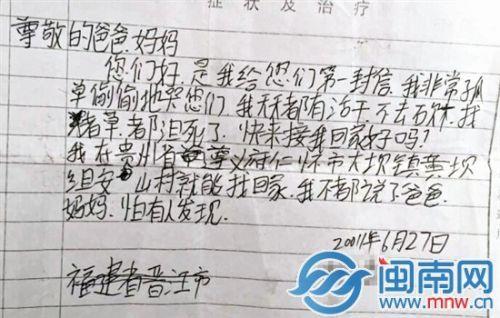 症状及治疗
尊敬的爸爸.妈妈
您们好.是我给您们第一封信.我非常孤
单偷偷地哭您们我天天都有活干.不去石
猪草.都迫死了.快来接我回家好吗?
我在贵州省遵义府仁怀市大坝镇黄坝
组安山村就能找回家.我不都说了爸爸.
妈妈.怕有人发现.
2001年6月27日
福建省晋江市
闽南网
www.mnw.cn